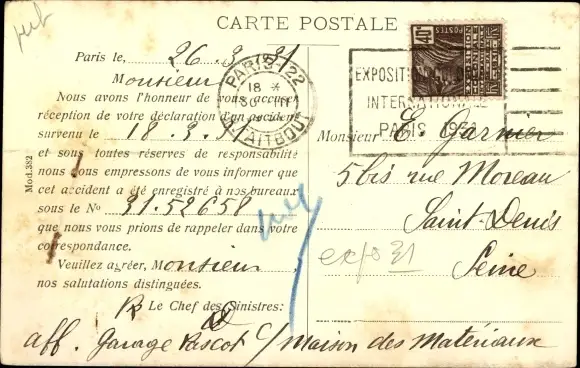 CARTE POSTALE
Paris le, 26.3.31
Monsieur
Nous avons l'honneur de vous accuser
réception de votre déclaration d'un accident
survenu le 18.3.31
et sous toutes réserves de responsabilité
nous nous empressons de vous informer que
cet accident a été enregistré à nos bureaux
sous le No 31.52658
que nous vous prions de rappeler dans votre
correspondance.
Veuillez agréer, Monsieur,
nos salutations distinguées.
Le Chef des Sinistres:
aff. Garage Pascot c/ Maison des Matériaux
Mod.382
PARIS 22
18 *
30 III
R. TAITBOUT
EXPOSITION COLONIALE
INTERNATIONALE
PARIS 1931
40c
POSTES
Monsieur E. Garnier
5bis rue Moreau
Saint-Denis
Seine
expo 31